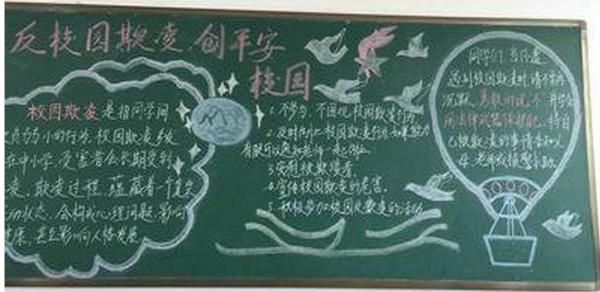 反校园欺凌,创平安
校园
校园欺凌是指同学间
欺负弱小的行为,校园欺凌多
在中小学,受害者会长期受到
欺凌过程,蕴藏着一个复杂
互动状态,会构成心理问题,影响
健康,甚至影响人格发展。
1.不参与,不围观校园欺凌行为
2.及时制止校园欺凌行为,如果能力
有限可以通知老师
3.安慰被欺凌者。
4.宣传校园欺凌的危害。
5.积极参加校园反欺凌的活动
同学们,当你遭
遇到校园欺凌时,请不要再
沉默,勇敢的说"不"并学会
用法律武器保护自己,将自
己被欺凌的事情告知父
母、老师或报警求助。